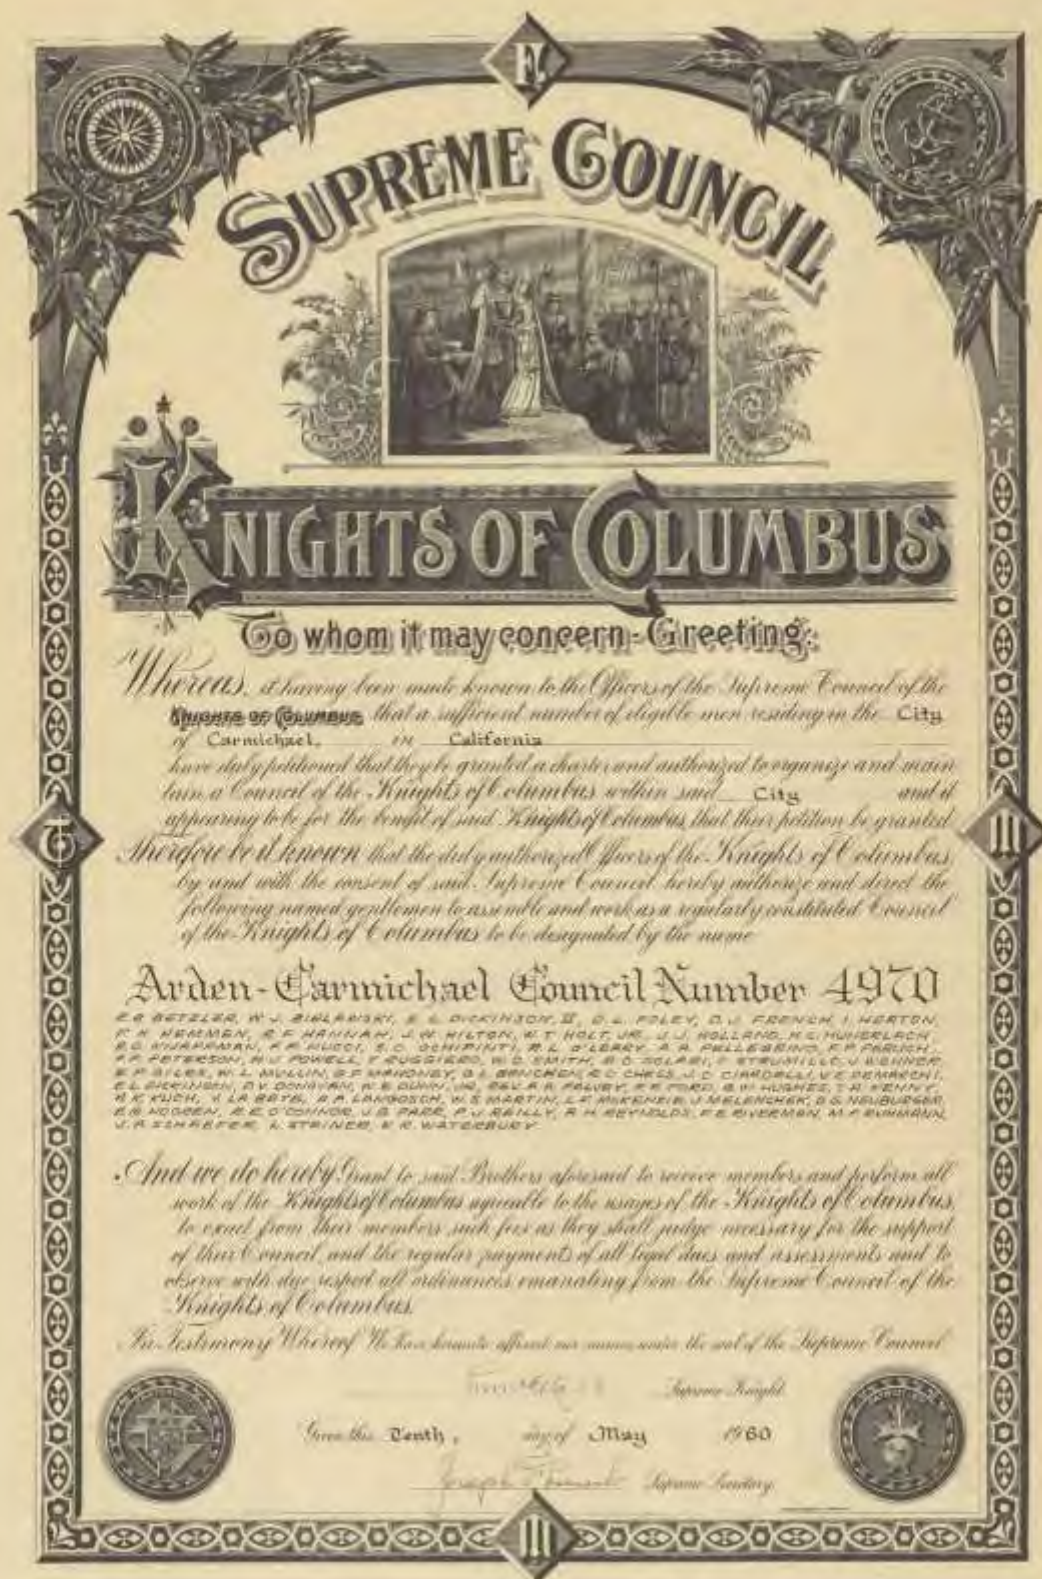 F.
SUPREME COUNCIL
KNIGHTS OF COLUMBUS
To whom it may concern - Greeting:
Whereas, it having been made known to the Officers of the Supreme Council of the
KNIGHTS OF COLUMBUS that a sufficient number of eligible men residing in the City
of Carmichael, in California
have duly petitioned that they be granted a charter and authorized to organize and main
tain a Council of the Knights of Columbus within said City and it
appearing to be for the benefit of said Knights of Columbus that their petition be granted
Therefore be it known that the duly authorized Officers of the Knights of Columbus
by and with the consent of said Supreme Council hereby authorize and direct the
following named gentlemen to assemble and work as a regularly constituted Council
of the Knights of Columbus to be designated by the name
Arden-Carmichael Council Number 4970
E.G. BETZLER, W.J. BIALANSKI, E.L. DICKINSON II, D.L. FOLEY, D.J. FRENCH, I. HERTON,
F.H. HEMMEN, R.F. HANNAH, J.W. HILTON, W.T. HOLT, JR., J.J. HOLLAND,
F.R. MUCCI, R.L. O'LEARY, A.R. PELLEGRINO,
P.F. PETERSON, M.J. POWELL, T. RUGGIERO, W.D. SMITH,
E.P. GILES, W.L. MULLIN, G.F. MAHONEY, R.C. CHESS, J.C. CIARDELLI, V.E. DEMARCHI,
E.L. DICKINSON, D.V. DONOVAN, W.E. DUNN, JR., REV. A.R. FALVEY, R.E. FORD, G.W. HUGHES, T.A. KENNY,
R.K. KUCH, A.A. LANGOSCH, W.S. MARTIN, L.F. McKENZIE, J. MELENCHEK, D.G. NEUBURGER,
R.E. O'CONNOR, J.B. PARR, P.J. REILLY, R.H. REYNOLDS, F.E. RIVERMAN, M.F. RUHMANN,
J.A. SCHAEFER, L. STEINER, K.R. WATERBURY
And we do hereby Grant to said Brothers aforesaid to receive members and perform all
work of the Knights of Columbus agreeable to the usages of the Knights of Columbus,
to exact from their members such fees as they shall judge necessary for the support
of their Council and the regular payments of all legal dues and assessments and to
observe with due respect all ordinances emanating from the Supreme Council of the
Knights of Columbus.
In Testimony Whereof We have hereunto affixed our names under the seal of the Supreme Council
Supreme Knight
Given this Tenth, day of May 1960
Joseph Supreme Secretary